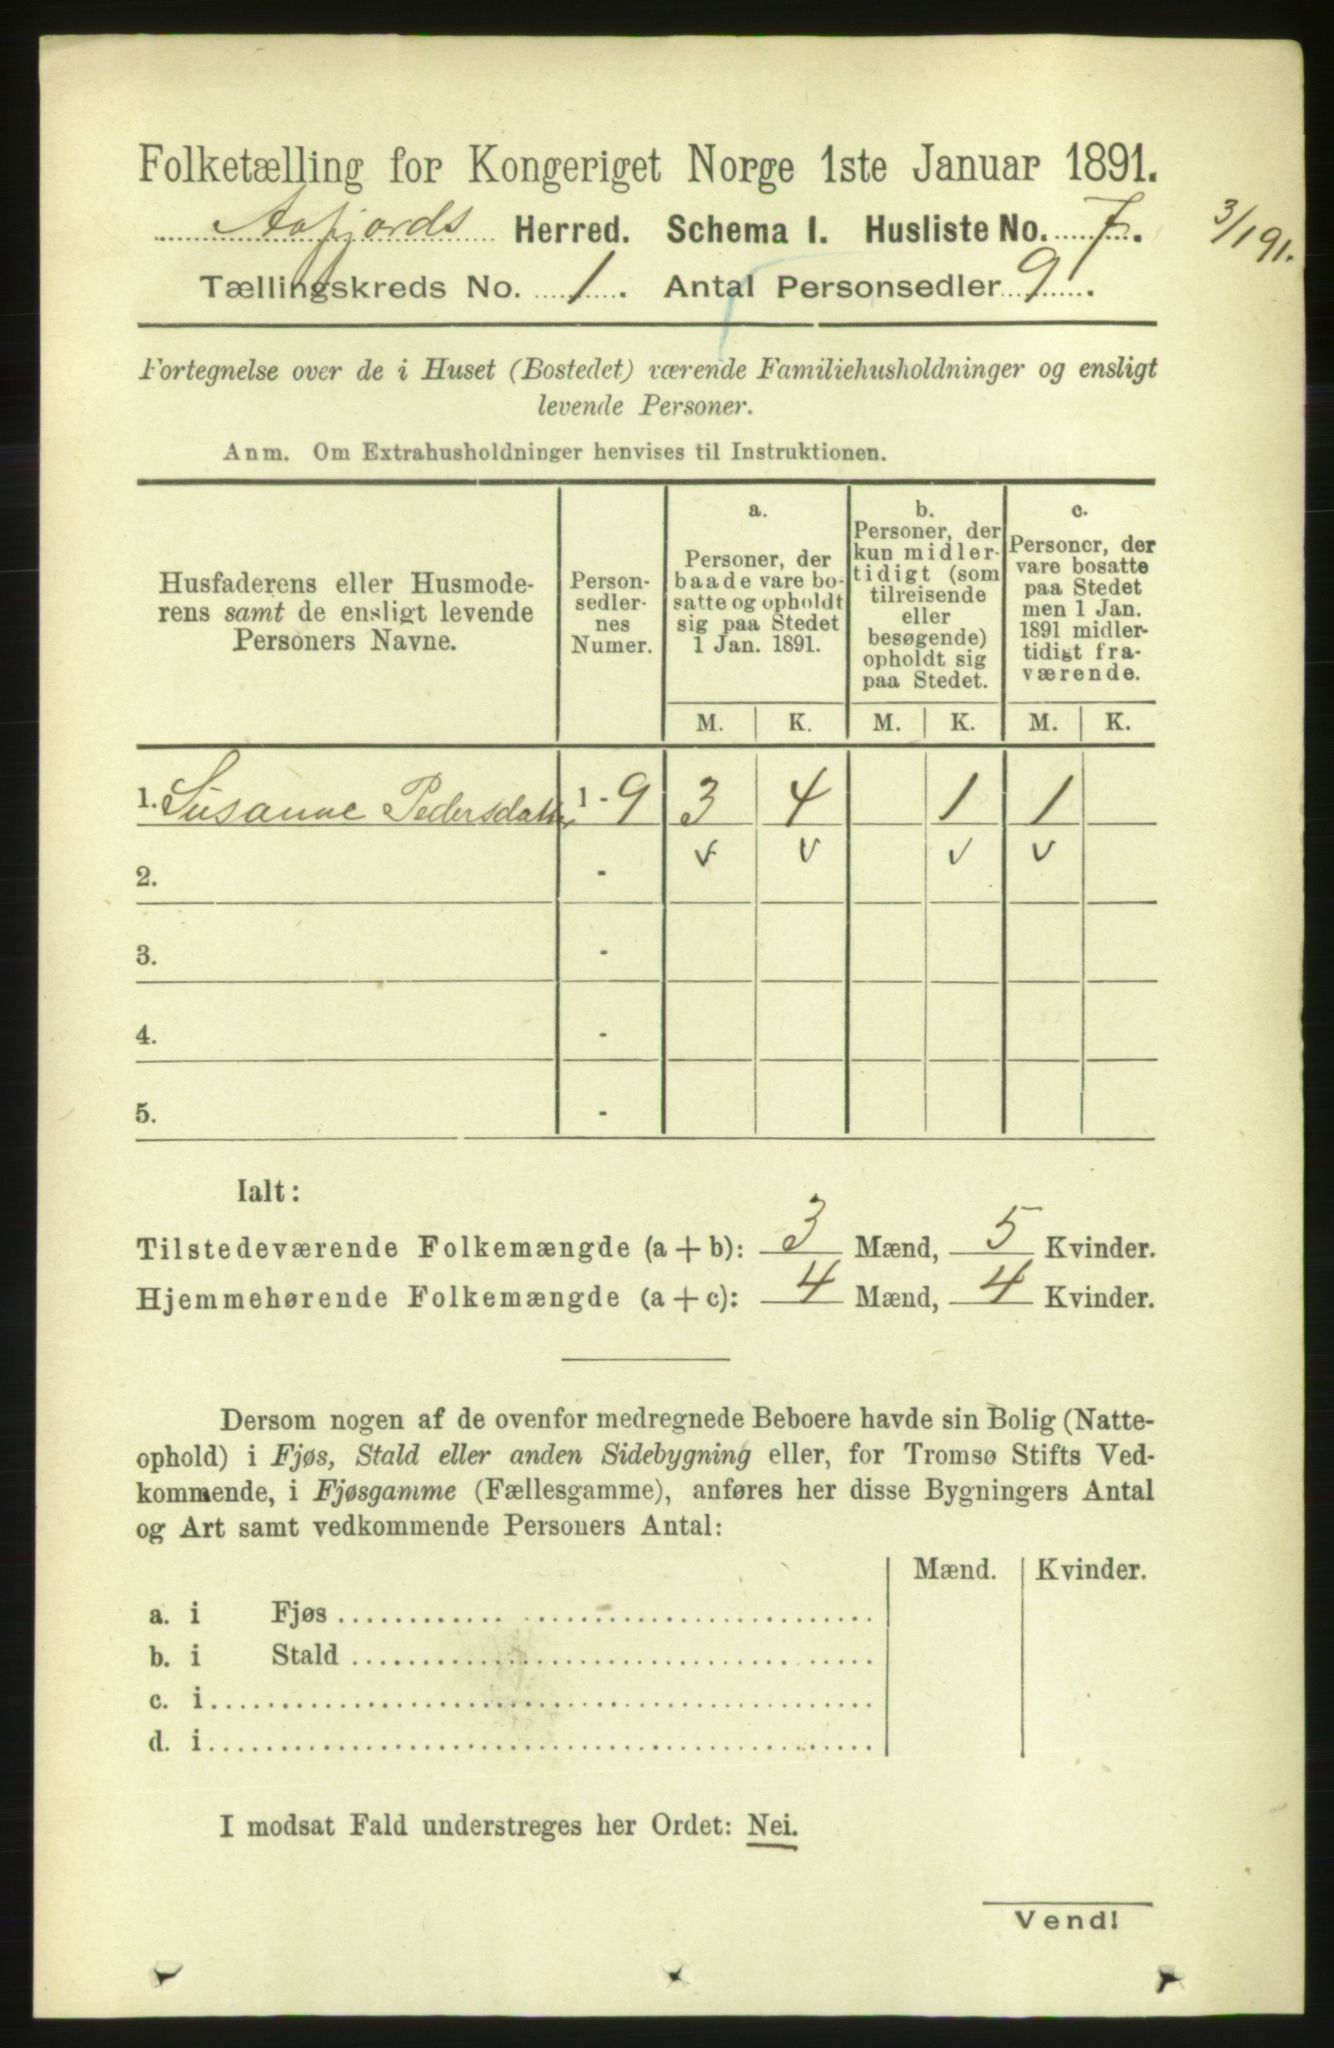 Folketælling for Kongeriget Norge 1ste Januar 1891.
Aafjords Herred. Schema I. Husliste No. 7. 3/1 91.
Tællingskreds No. 1. Antal Personsedler 9.
Fortegnelse over de i Huset (Bostedet) værende Familiehusholdninger og ensligt
levende Personer.
Anm. Om Extrahusholdninger henvises til Instruktionen.
Husfaderens eller Husmode-
rens samt de ensligt levende
Personers Navne.
Person-
sedler-
nes
Numer.
a.
Personer, der
baade vare bo-
satte og opholdt
sig paa Stedet
1 Jan. 1891.
b.
Personer, der
kun midler-
tidigt (som
tilreisende
eller
besøgende)
opholdt sig
paa Stedet.
c.
Personer, der
vare bosatte
paa Stedet
men 1 Jan.
1891 midler-
tidigt fra-
værende.
M. K. M. K. M. K.
1. Susanne Pedersdatter 1 - 9 3 4 1 1
2. - v v v v
3. -
4. -
5. -
Ialt:
Tilstedeværende Folkemængde (a + b): 3 Mænd, 5 Kvinder.
Hjemmehørende Folkemængde (a + c): 4 Mænd, 4 Kvinder.
Dersom nogen af de ovenfor medregnede Beboere havde sin Bolig (Natte-
ophold) i Fjøs, Stald eller anden Sidebygning eller, for Tromsø Stifts Ved-
kommende, i Fjøsgamme (Fællesgamme), anføres her disse Bygningers Antal
og Art samt vedkommende Personers Antal:
Mænd. Kvinder.
a. i Fjøs
b. i Stald
c. i
d. i
I modsat Fald understreges her Ordet: Nei.
Vend!